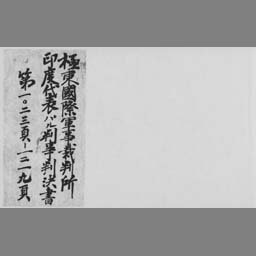 極東國際軍事裁判所
印度代表パル判事判決書
第一〇二三頁―一二一九頁